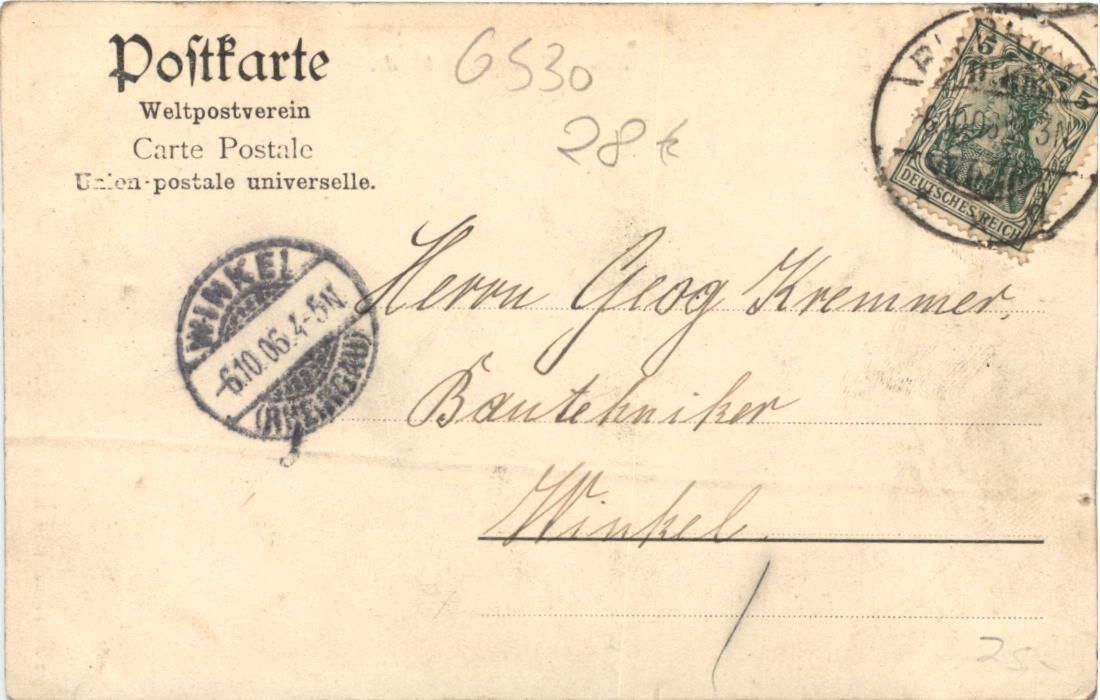 Poſtkarte
Weltpostverein
Carte Postale
Union-postale universelle.
GS30
28 €
5 5
DEUTSCHES REICH
3N
WINKEL
6.10.06.4-5N
(RHEINGAU)
Herrn Geog Kremmer,
Bautehniker
Winkel.
25-